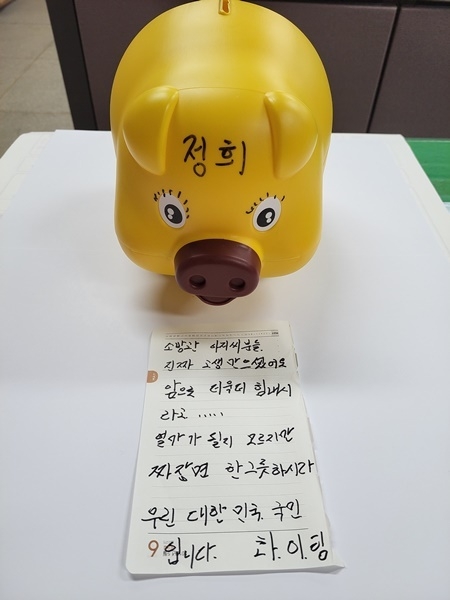 정희
소방관 아저씨분들.
진짜 고생 만으셨어요
앞으로 더욱더 힘내시
라고 .....
얼마가 될지 모르지만
짜장면 한그릇하시라
우린 대한 민국. 국민
9 입니다. 화.이.팅